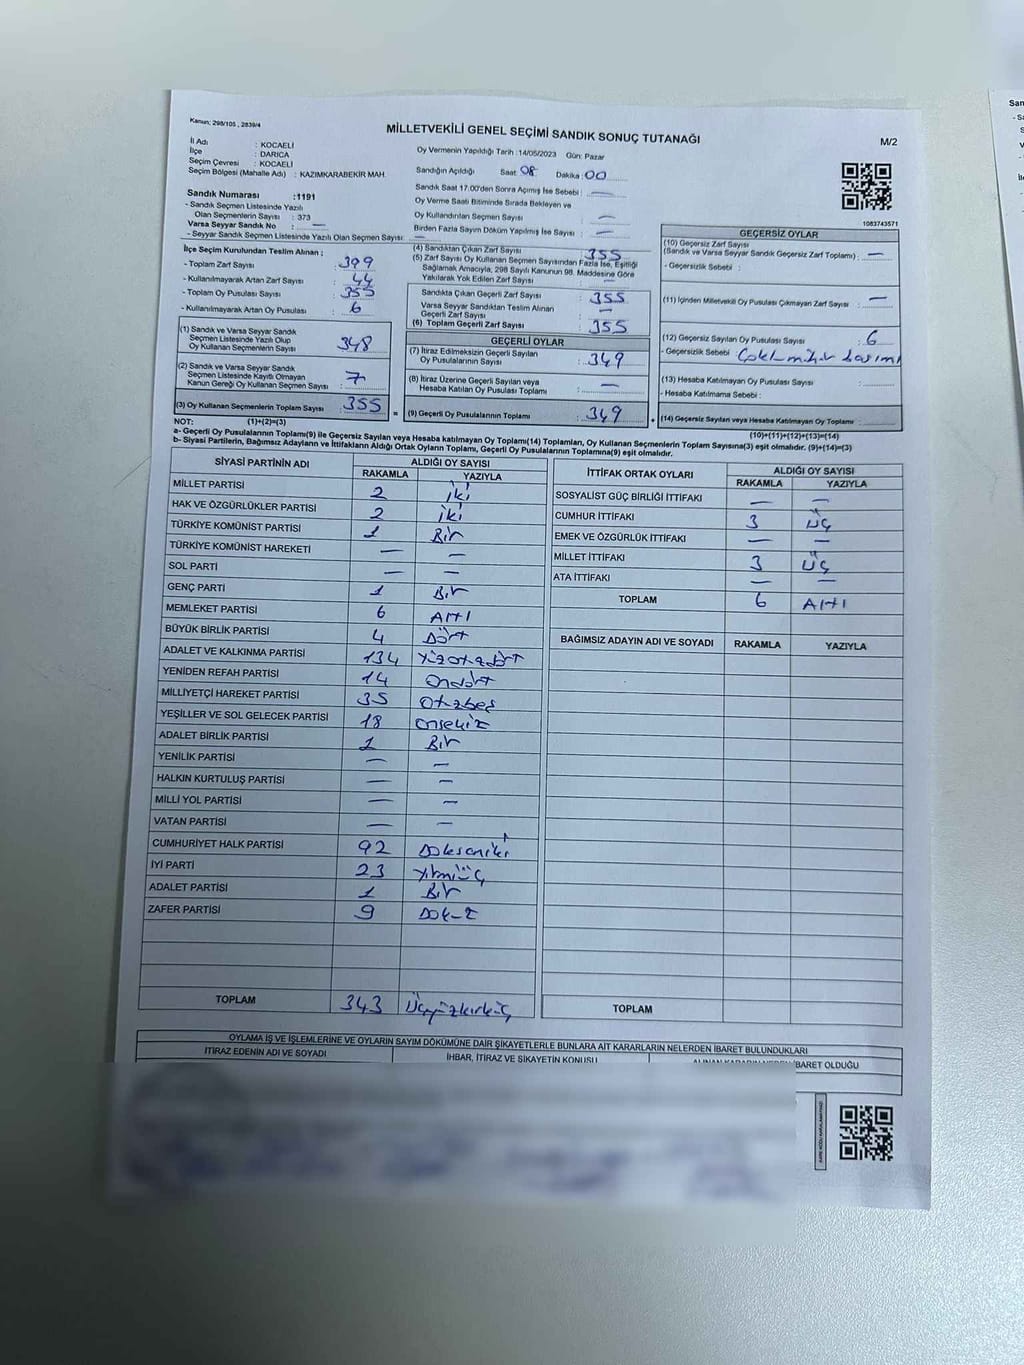 Kanun; 298/105 , 2839/4
MİLLETVEKİLİ GENEL SEÇİMİ SANDIK SONUÇ TUTANAĞI
M/2
İl Adı : KOCAELİ
İlçe : DARICA
Seçim Çevresi : KOCAELİ
Seçim Bölgesi (Mahalle Adı) : KAZIMKARABEKİR MAH.
Oy Vermenin Yapıldığı Tarih :14/05/2023 Gün: Pazar
Sandığın Açıldığı Saat 08 Dakika : 00
Sandık Saat 17.00'den Sonra Açımış İse Sebebi : —
Oy Verme Saati Bitiminde Sırada Bekleyen ve
Oy Kullandırılan Seçmen Sayısı : —
Birden Fazla Sayım Döküm Yapılmış İse Sayısı : —
1083743571
Sandık Numarası :1191
- Sandık Seçmen Listesinde Yazılı
Olan Seçmenlerin Sayısı : 373
Varsa Seyyar Sandık No : —
- Seyyar Sandık Seçmen Listesinde Yazılı Olan Seçmen Sayısı : —
İlçe Seçim Kurulundan Teslim Alınan ;
- Toplam Zarf Sayısı : 399
- Kullanılmayarak Artan Zarf Sayısı : 44
- Toplam Oy Pusulası Sayısı : 355
- Kullanılmayarak Artan Oy Pusulası : 6
(1) Sandık ve Varsa Seyyar Sandık
Seçmen Listesinde Yazılı Olup
Oy Kullanan Seçmenlerin Sayısı : 348
(2) Sandık ve Varsa Seyyar Sandık
Seçmen Listesinde Kayıtlı Olmayan
Kanun Gereği Oy Kullanan Seçmen Sayısı : 7
(3) Oy Kullanan Seçmenlerin Toplam Sayısı : 355
(1)+(2)=(3)
(4) Sandıktan Çıkan Zarf Sayısı : 355
(5) Zarf Sayısı Oy Kullanan Seçmen Sayısından Fazla İse, Eşitliği
Sağlamak Amacıyla, 298 Sayılı Kanunun 98. Maddesine Göre
Yakılarak Yok Edilen Zarf Sayısı : —
Sandıkta Çıkan Geçerli Zarf Sayısı : 355
Varsa Seyyar Sandıktan Teslim Alınan
Geçerli Zarf Sayısı : —
(6) Toplam Geçerli Zarf Sayısı : 355
GEÇERLİ OYLAR
(7) İtiraz Edilmeksizin Geçerli Sayılan
Oy Pusulalarının Sayısı : 349
(8) İtiraz Üzerine Geçerli Sayılan veya
Hesaba Katılan Oy Pusulası Toplamı : —
= (9) Geçerli Oy Pusulalarının Toplamı : 349 +
GEÇERSİZ OYLAR
(10) Geçersiz Zarf Sayısı
(Sandık ve Varsa Seyyar Sandık Geçersiz Zarf Toplamı) : —
- Geçersizlik Sebebi :
(11) İçinden Milletvekili Oy Pusulası Çıkmayan Zarf Sayısı : —
(12) Geçersiz Sayılan Oy Pusulası Sayısı : 6
- Geçersizlik Sebebi :
(13) Hesaba Katılmayan Oy Pusulası Sayısı :
- Hesaba Katılmama Sebebi :
(14) Geçersiz Sayılan veya Hesaba Katılmayan Oy Toplamı :
(10)+(11)+(12)+(13)=(14)
NOT:
a- Geçerli Oy Pusulalarının Toplamı(9) ile Geçersiz Sayılan veya Hesaba katılmayan Oy Toplamı(14) Toplamları, Oy Kullanan Seçmenlerin Toplam Sayısına(3) eşit olmalıdır. (9)+(14)=(3)
b- Siyasi Partilerin, Bağımsız Adayların ve İttifakların Aldığı Ortak Oyların Toplamı, Geçerli Oy Pusulalarının Toplamına(9) eşit olmalıdır.
SİYASİ PARTİNİN ADI ALDIĞI OY SAYISI
RAKAMLA YAZIYLA
MİLLET PARTİSİ 2 iki
HAK VE ÖZGÜRLÜKLER PARTİSİ 2 iki
TÜRKİYE KOMÜNİST PARTİSİ 1 Bir
TÜRKİYE KOMÜNİST HAREKETİ — —
SOL PARTİ — —
GENÇ PARTİ 1 Bir
MEMLEKET PARTİSİ 6 Altı
BÜYÜK BİRLİK PARTİSİ 4 Dört
ADALET VE KALKINMA PARTİSİ 134 Yüzotuzdört
YENİDEN REFAH PARTİSİ 14 Ondört
MİLLİYETÇİ HAREKET PARTİSİ 35 Otuzbeş
YEŞİLLER VE SOL GELECEK PARTİSİ 18 Onsekiz
ADALET BİRLİK PARTİSİ 1 Bir
YENİLİK PARTİSİ — —
HALKIN KURTULUŞ PARTİSİ — —
MİLLİ YOL PARTİSİ — —
VATAN PARTİSİ — —
CUMHURİYET HALK PARTİSİ 92 Doksaniki
İYİ PARTİ 23 Yirmiüç
ADALET PARTİSİ 1 Bir
ZAFER PARTİSİ 9 Dokuz
TOPLAM 343 Üçyüzkırküç
İTTİFAK ORTAK OYLARI ALDIĞI OY SAYISI
RAKAMLA YAZIYLA
SOSYALİST GÜÇ BİRLİĞİ İTTİFAKI — —
CUMHUR İTTİFAKI 3 Üç
EMEK VE ÖZGÜRLÜK İTTİFAKI — —
MİLLET İTTİFAKI 3 Üç
ATA İTTİFAKI — —
TOPLAM 6 Altı
BAĞIMSIZ ADAYIN ADI VE SOYADI RAKAMLA YAZIYLA
TOPLAM
OYLAMA İŞ VE İŞLEMLERİNE VE OYLARIN SAYIM DÖKÜMÜNE DAİR ŞİKAYETLERLE BUNLARA AİT KARARLARIN NELERDEN İBARET BULUNDUKLARI
İTİRAZ EDENİN ADI VE SOYADI İHBAR, İTİRAZ VE ŞİKAYETİN KONUSU ALINAN KARARIN NEDEN İBARET OLDUĞU